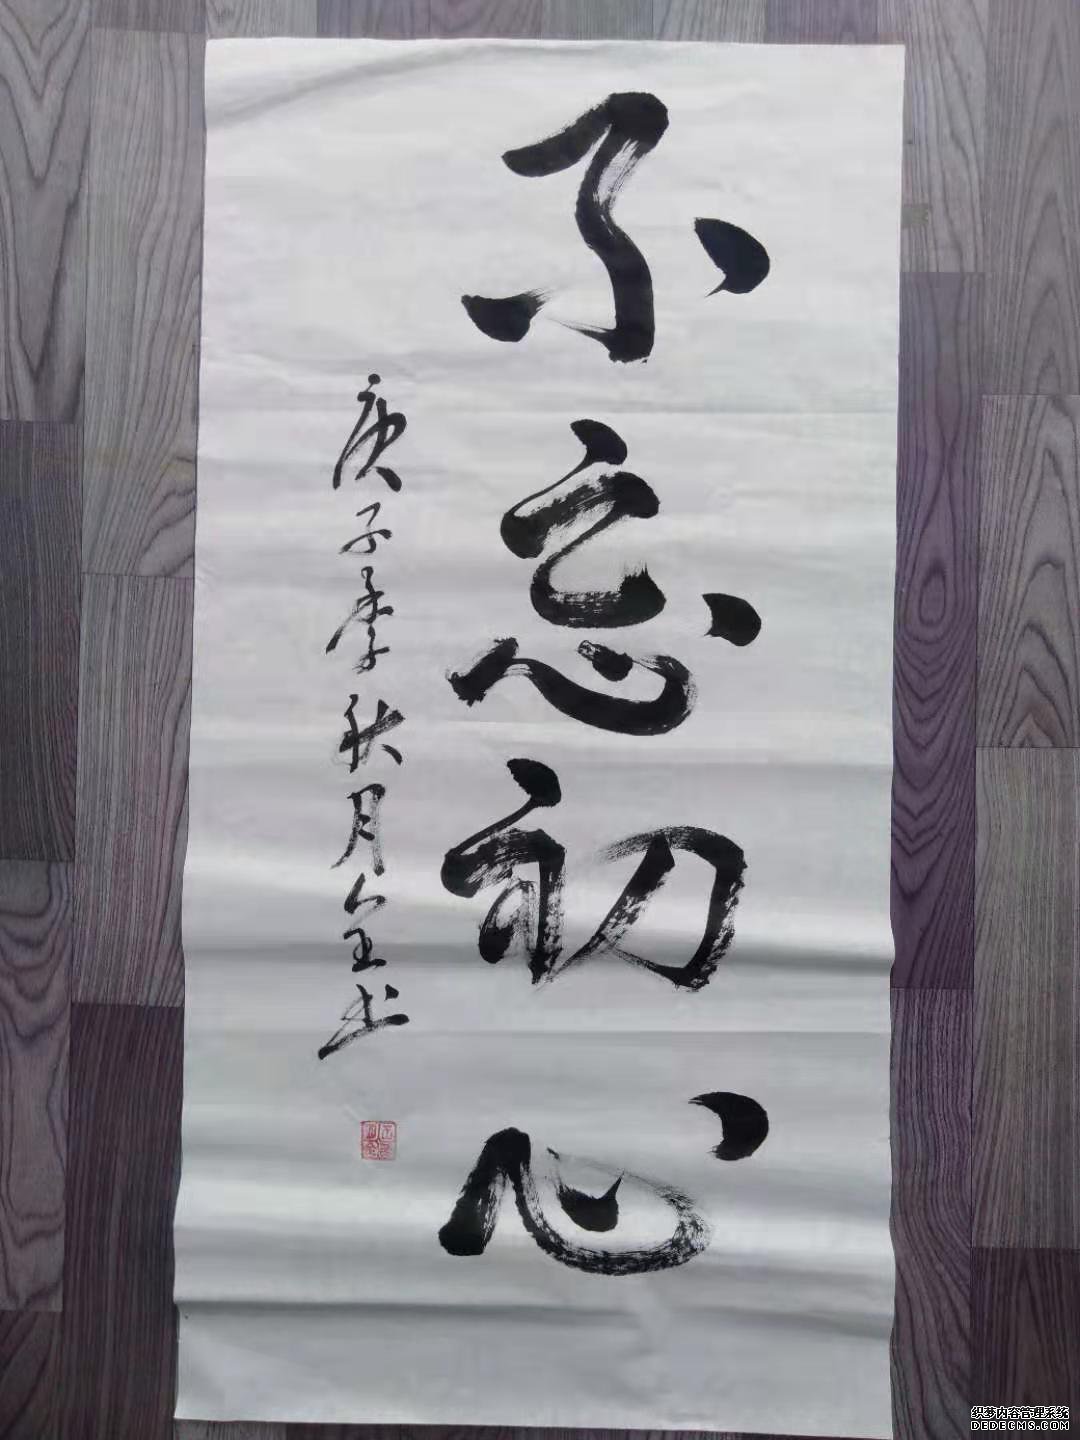 不忘初心
庚子季秋月全书
织梦内容管理系统
DEDECMS.COM